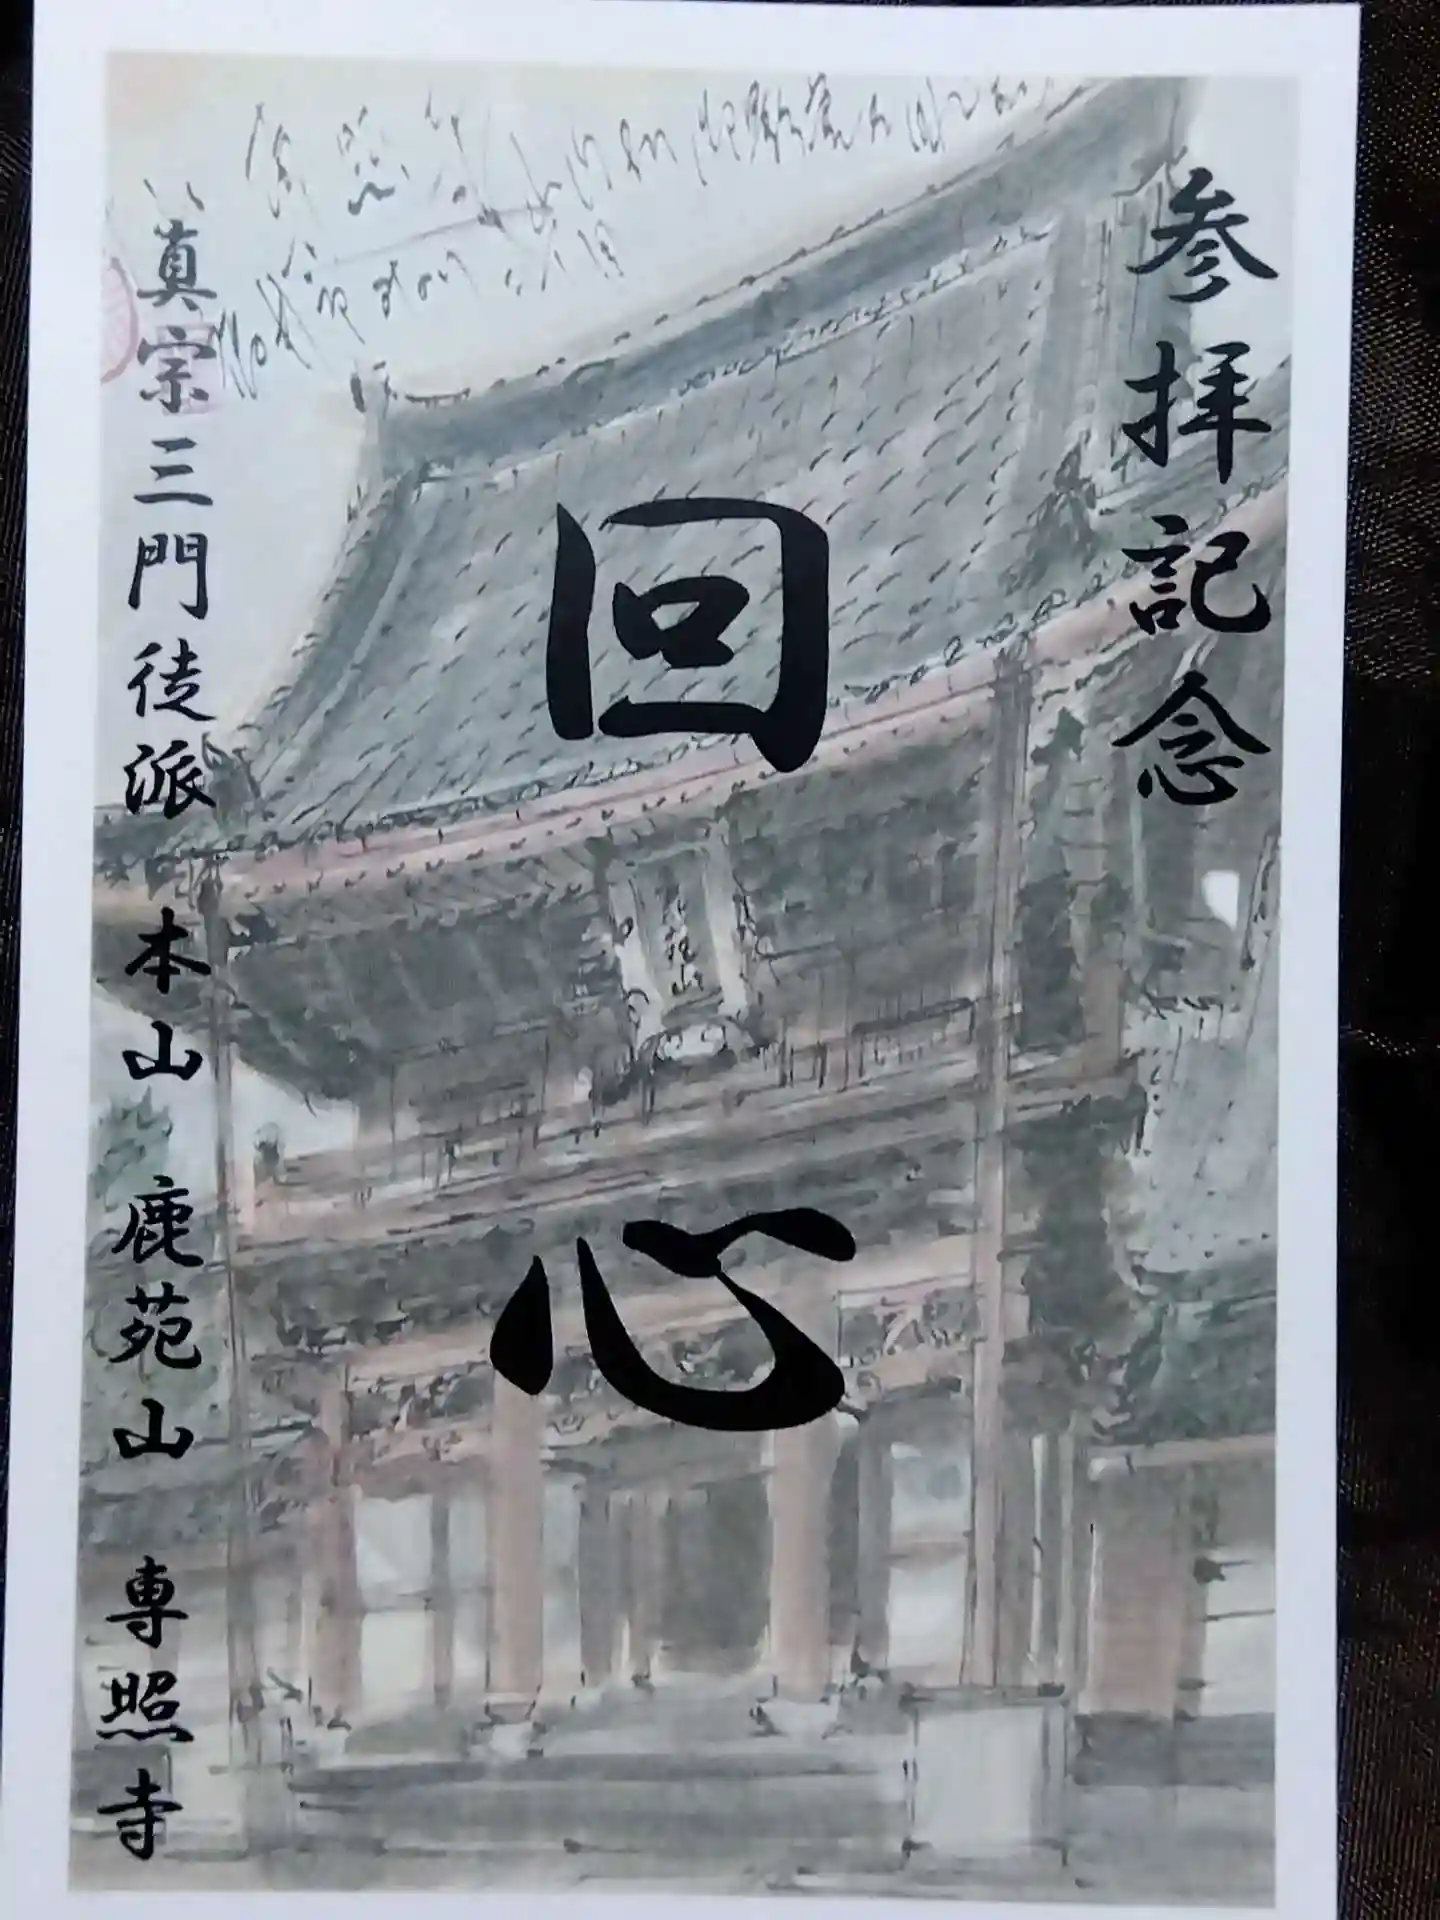 参拝記念
回心
真宗三門徒派 本山 鹿苑山 専照寺
鹿苑山